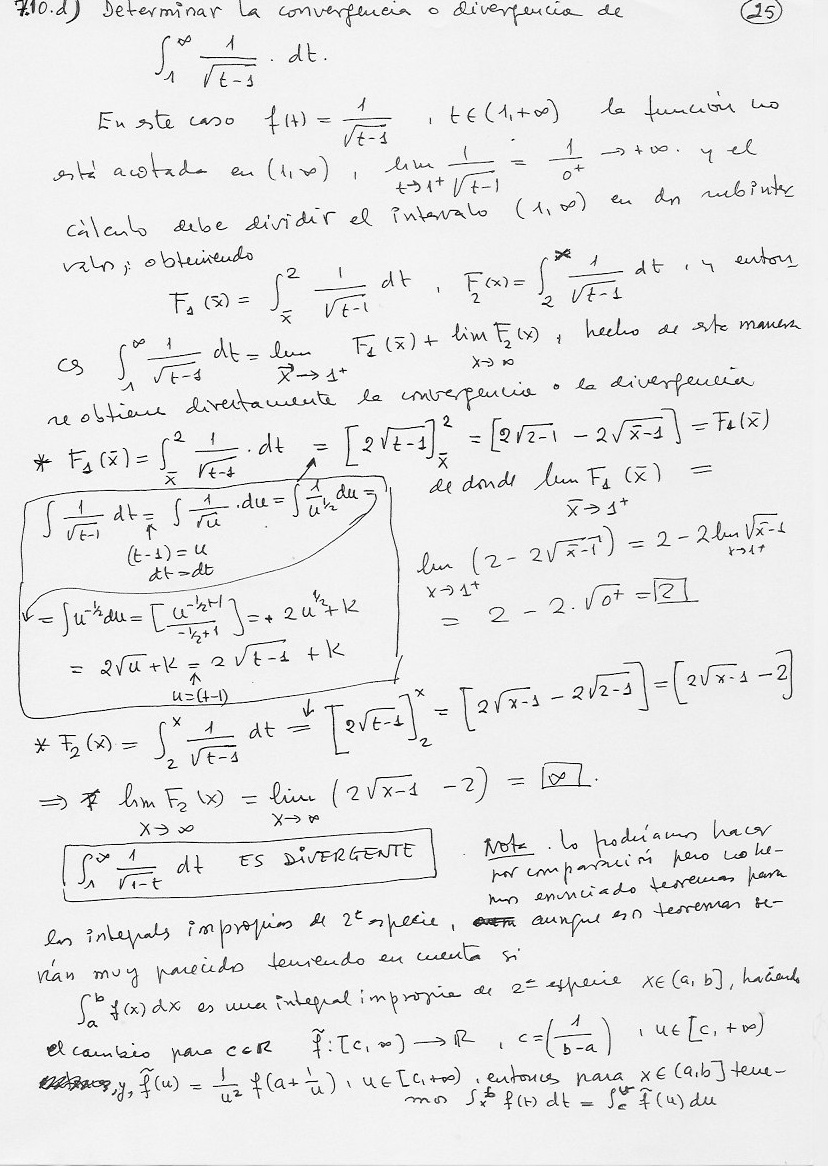 7.10.d) Determinar la convergencia o divergencia de (25)
∫_1^∞ 1/√(t-1) · dt.
En este caso f(t) = 1/√(t-1) , t∈(1,+∞) la función no
está acotada en (1,∞) , lim_{t→1+} 1/√(t-1) = 1/0+ → +∞. y el
cálculo debe dividir el intervalo (1,∞) en dos subinter
valos; obteniendo
F₁(x̄) = ∫_x̄^2 1/√(t-1) dt , F₂(x) = ∫_2^x 1/√(t-1) dt , y enton
ces ∫_1^∞ 1/√(t-1) dt = lim_{x̄→1+} F₁(x̄) + lim_{x→∞} F₂(x) , hecho de esta manera
se obtiene directamente la convergencia o la divergencia
* F₁(x̄) = ∫_x̄^2 1/√(t-1) · dt = [2√(t-1)]_x̄^2 = [2√(2-1) - 2√(x̄-1)] = F₁(x̄)
de donde lim_{x̄→1+} F₁(x̄) =
lim_{x→1+} (2 - 2√(x̄-1)) = 2 - 2 lim_{x→1+} √(x̄-1)
= 2 - 2·√0+ = 2
∫ 1/√(t-1) dt = ∫ 1/√u · du = ∫ 1/u^(1/2) du =
(t-1) = u
dt = dt
= ∫u^(-1/2) du = [u^(-1/2+1)/(-1/2+1)] = + 2u^(1/2) + K
= 2√u + K = 2√(t-1) + K
u=(t-1)
* F₂(x) = ∫_2^x 1/√(t-1) dt = [2√(t-1)]_2^x = [2√(x-1) - 2√(2-1)] = [2√(x-1) - 2]
⇒ lim_{x→∞} F₂(x) = lim_{x→∞} (2√(x-1) - 2) = ∞.
∫_1^∞ 1/√(1-t) dt ES DIVERGENTE
Nota. lo podríamos hacer
por comparación pero no he-
mos enunciado teoremas para
las integrals impropias de 2ª especie, aunque esos teoremas se-
rían muy parecidos teniendo en cuenta si
∫_a^b f(x) dx es una integral impropia de 2ª especie x∈(a,b], haciendo
el cambio para c∈R f̃:[c,∞) → R , c=(1/(b-a)) , u∈[c,+∞)
y, f̃(u) = 1/u² f(a+1/u) , u∈[c,+∞) , entonces para x∈(a,b] tene-
mos ∫_x^b f(t) dt = ∫_c^v f̃(u) du